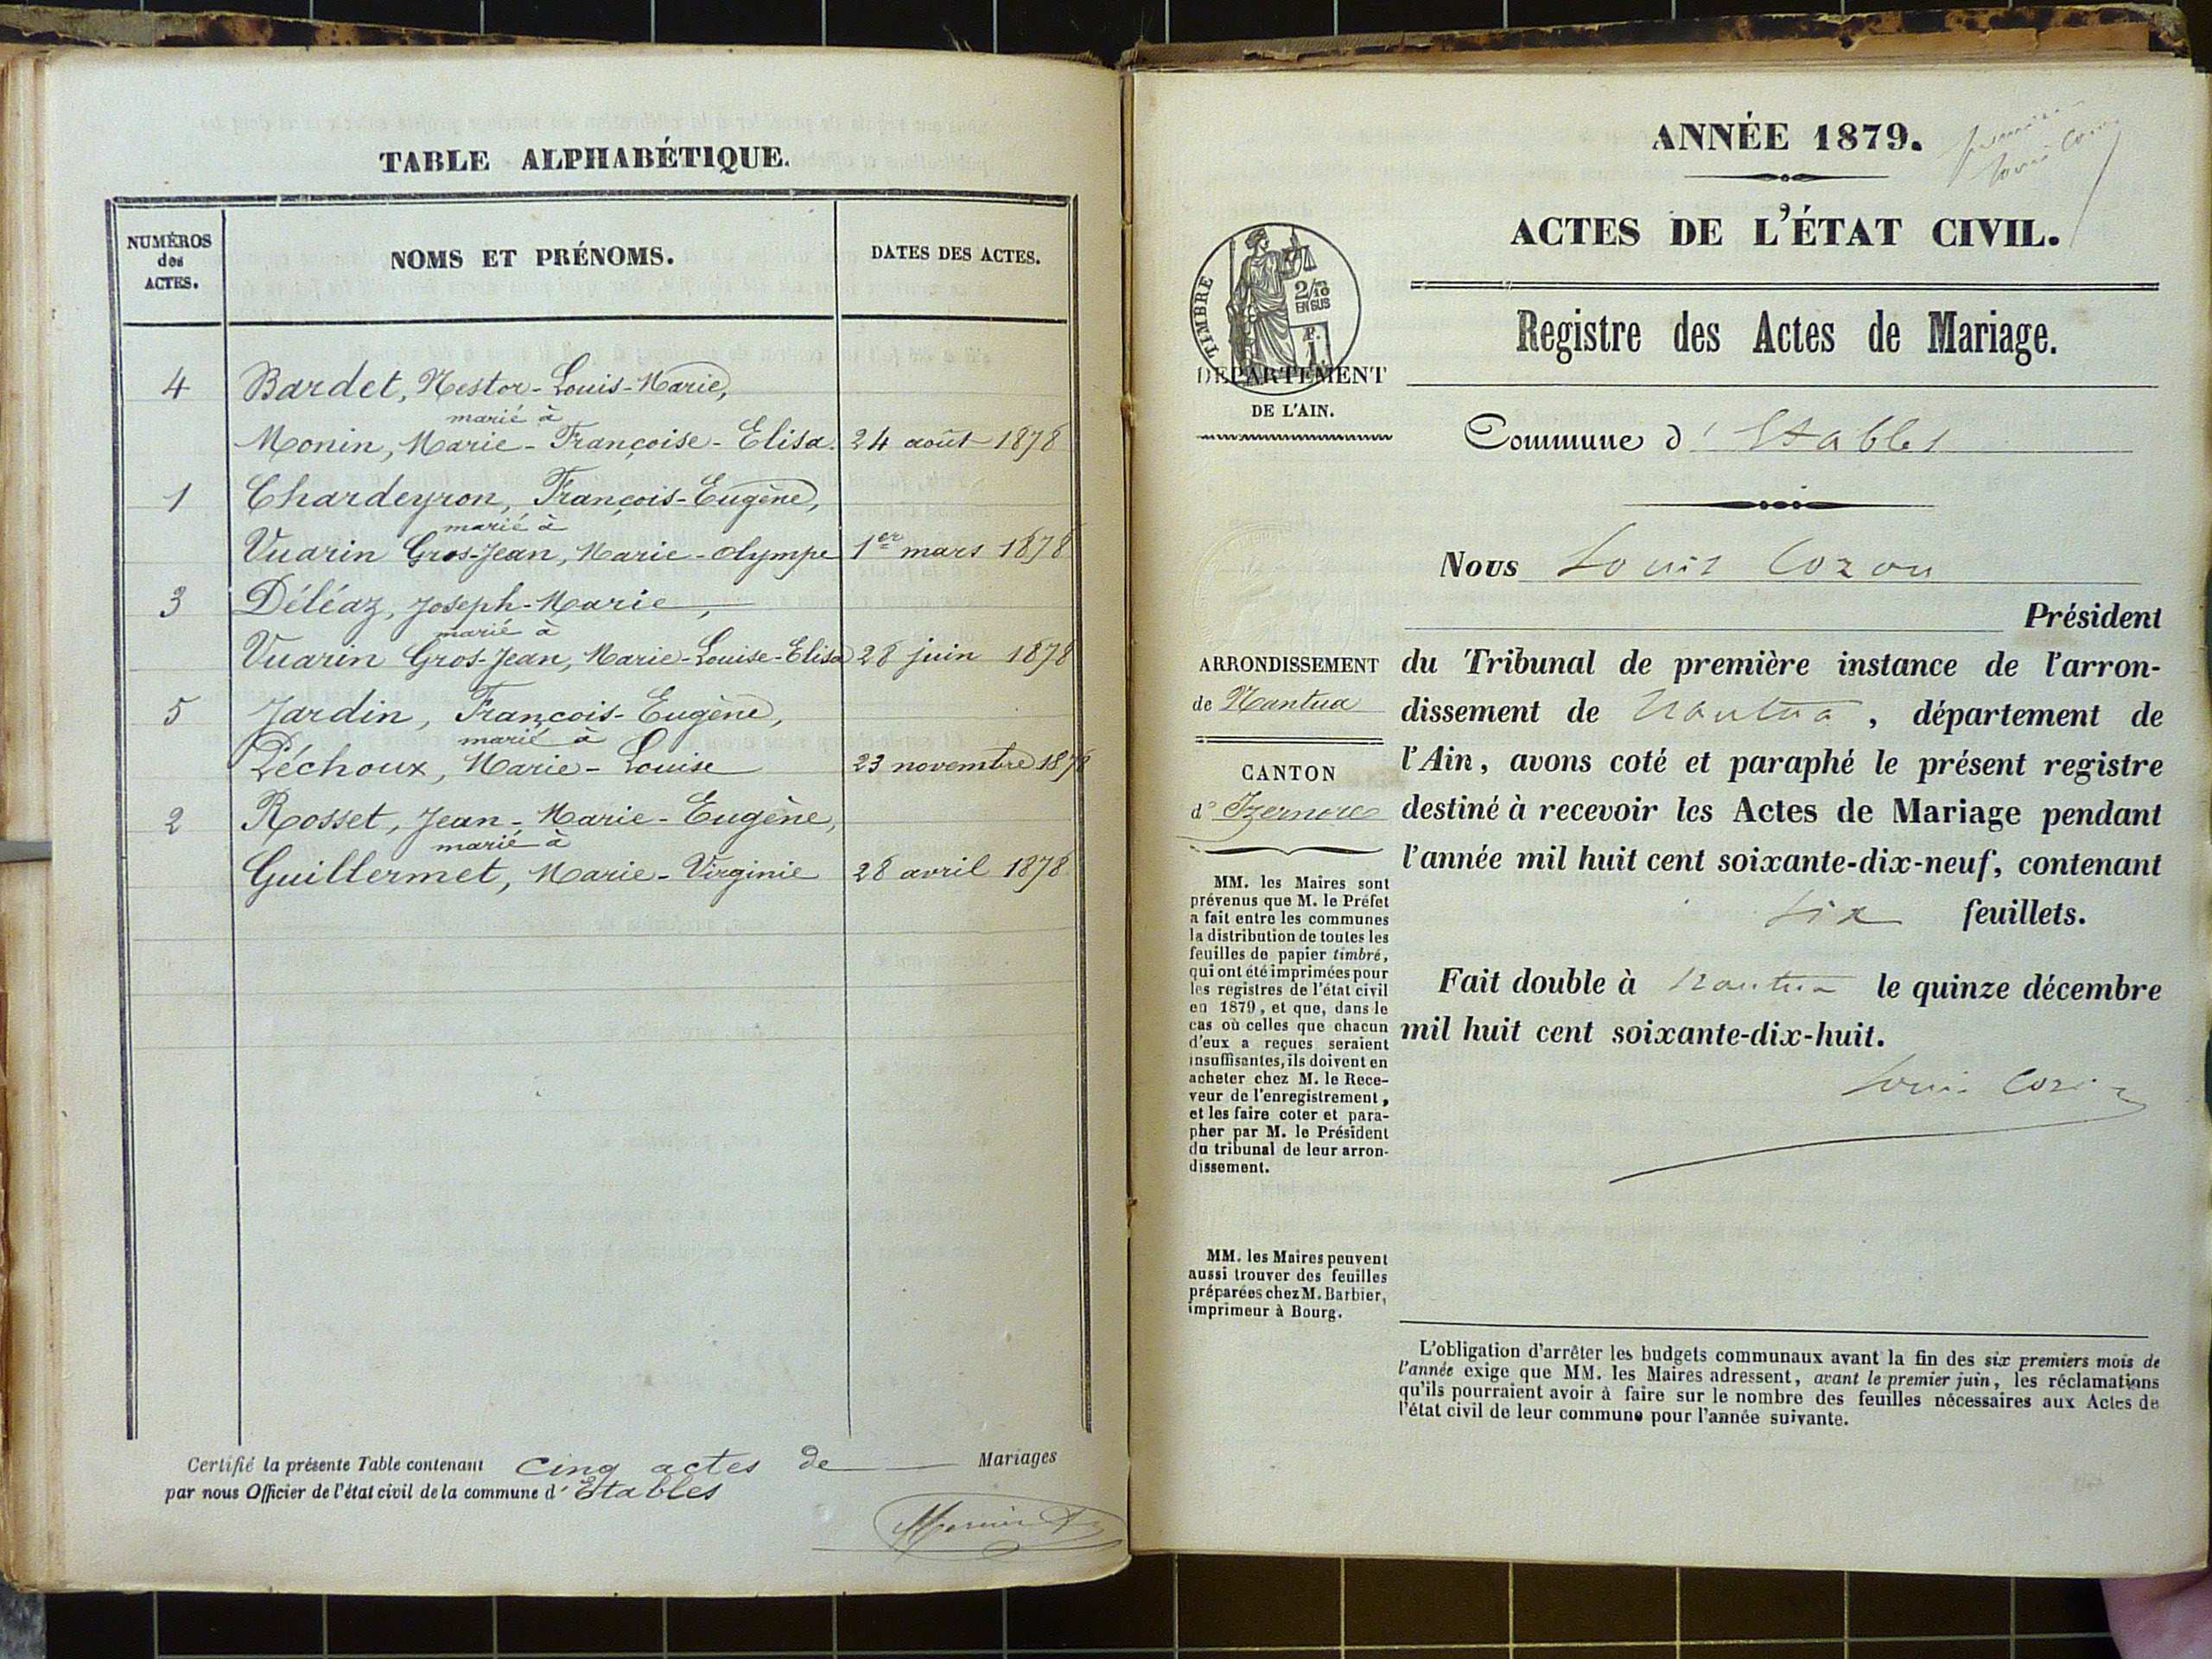 TABLE ALPHABÉTIQUE.
NUMÉROS des ACTES.
NOMS ET PRÉNOMS.
DATES DES ACTES.
4 Bardet, Nestor-Louis-Marie,
marié à
Monin, Marie-Françoise-Elisa. 24 août 1878
1 Chardeyron, François-Eugène,
marié à
Vuarin Gros-Jean, Marie-olympe 1er mars 1878
3 Déléaz, Joseph-Marie,
marié à
Vuarin Gros-Jean, Marie-Louise-Elisa 28 juin 1878
5 Jardin, François-Eugène,
marié à
Péchoux, Marie-Louise 23 novembre 1878
2 Rosset, Jean-Marie-Eugène,
marié à
Guillermet, Marie-Virginie 28 avril 1878
Certifié la présente Table contenant cinq actes de Mariages
par nous Officier de l'état civil de la commune d'Etables
ANNÉE 1879.
Louis Cozon
ACTES DE L'ÉTAT CIVIL.
TIMBRE
2/10
EN SUS
F.
1.
DÉPARTEMENT
DE L'AIN.
Registre des Actes de Mariage.
Commune d'Etables
Nous Louis Cozon
Président
du Tribunal de première instance de l'arron-
dissement de Nantua, département de
l'Ain, avons coté et paraphé le présent registre
destiné à recevoir les Actes de Mariage pendant
l'année mil huit cent soixante-dix-neuf, contenant
six feuillets.
Fait double à Nantua le quinze décembre
mil huit cent soixante-dix-huit.
Louis Cozon
ARRONDISSEMENT
de Nantua
CANTON
d'Izernore
MM. les Maires sont
prévenus que M. le Préfet
a fait entre les communes
la distribution de toutes les
feuilles de papier timbré,
qui ont été imprimées pour
les registres de l'état civil
en 1879, et que, dans le
cas où celles que chacun
d'eux a reçues seraient
insuffisantes, ils doivent en
acheter chez M. le Rece-
veur de l'enregistrement,
et les faire coter et para-
pher par M. le Président
du tribunal de leur arron-
dissement.
MM. les Maires peuvent
aussi trouver des feuilles
préparées chez M. Barbier,
imprimeur à Bourg.
L'obligation d'arrêter les budgets communaux avant la fin des six premiers mois de
l'année exige que MM. les Maires adressent, avant le premier juin, les réclamations
qu'ils pourraient avoir à faire sur le nombre des feuilles nécessaires aux Actes de
l'état civil de leur commune pour l'année suivante.